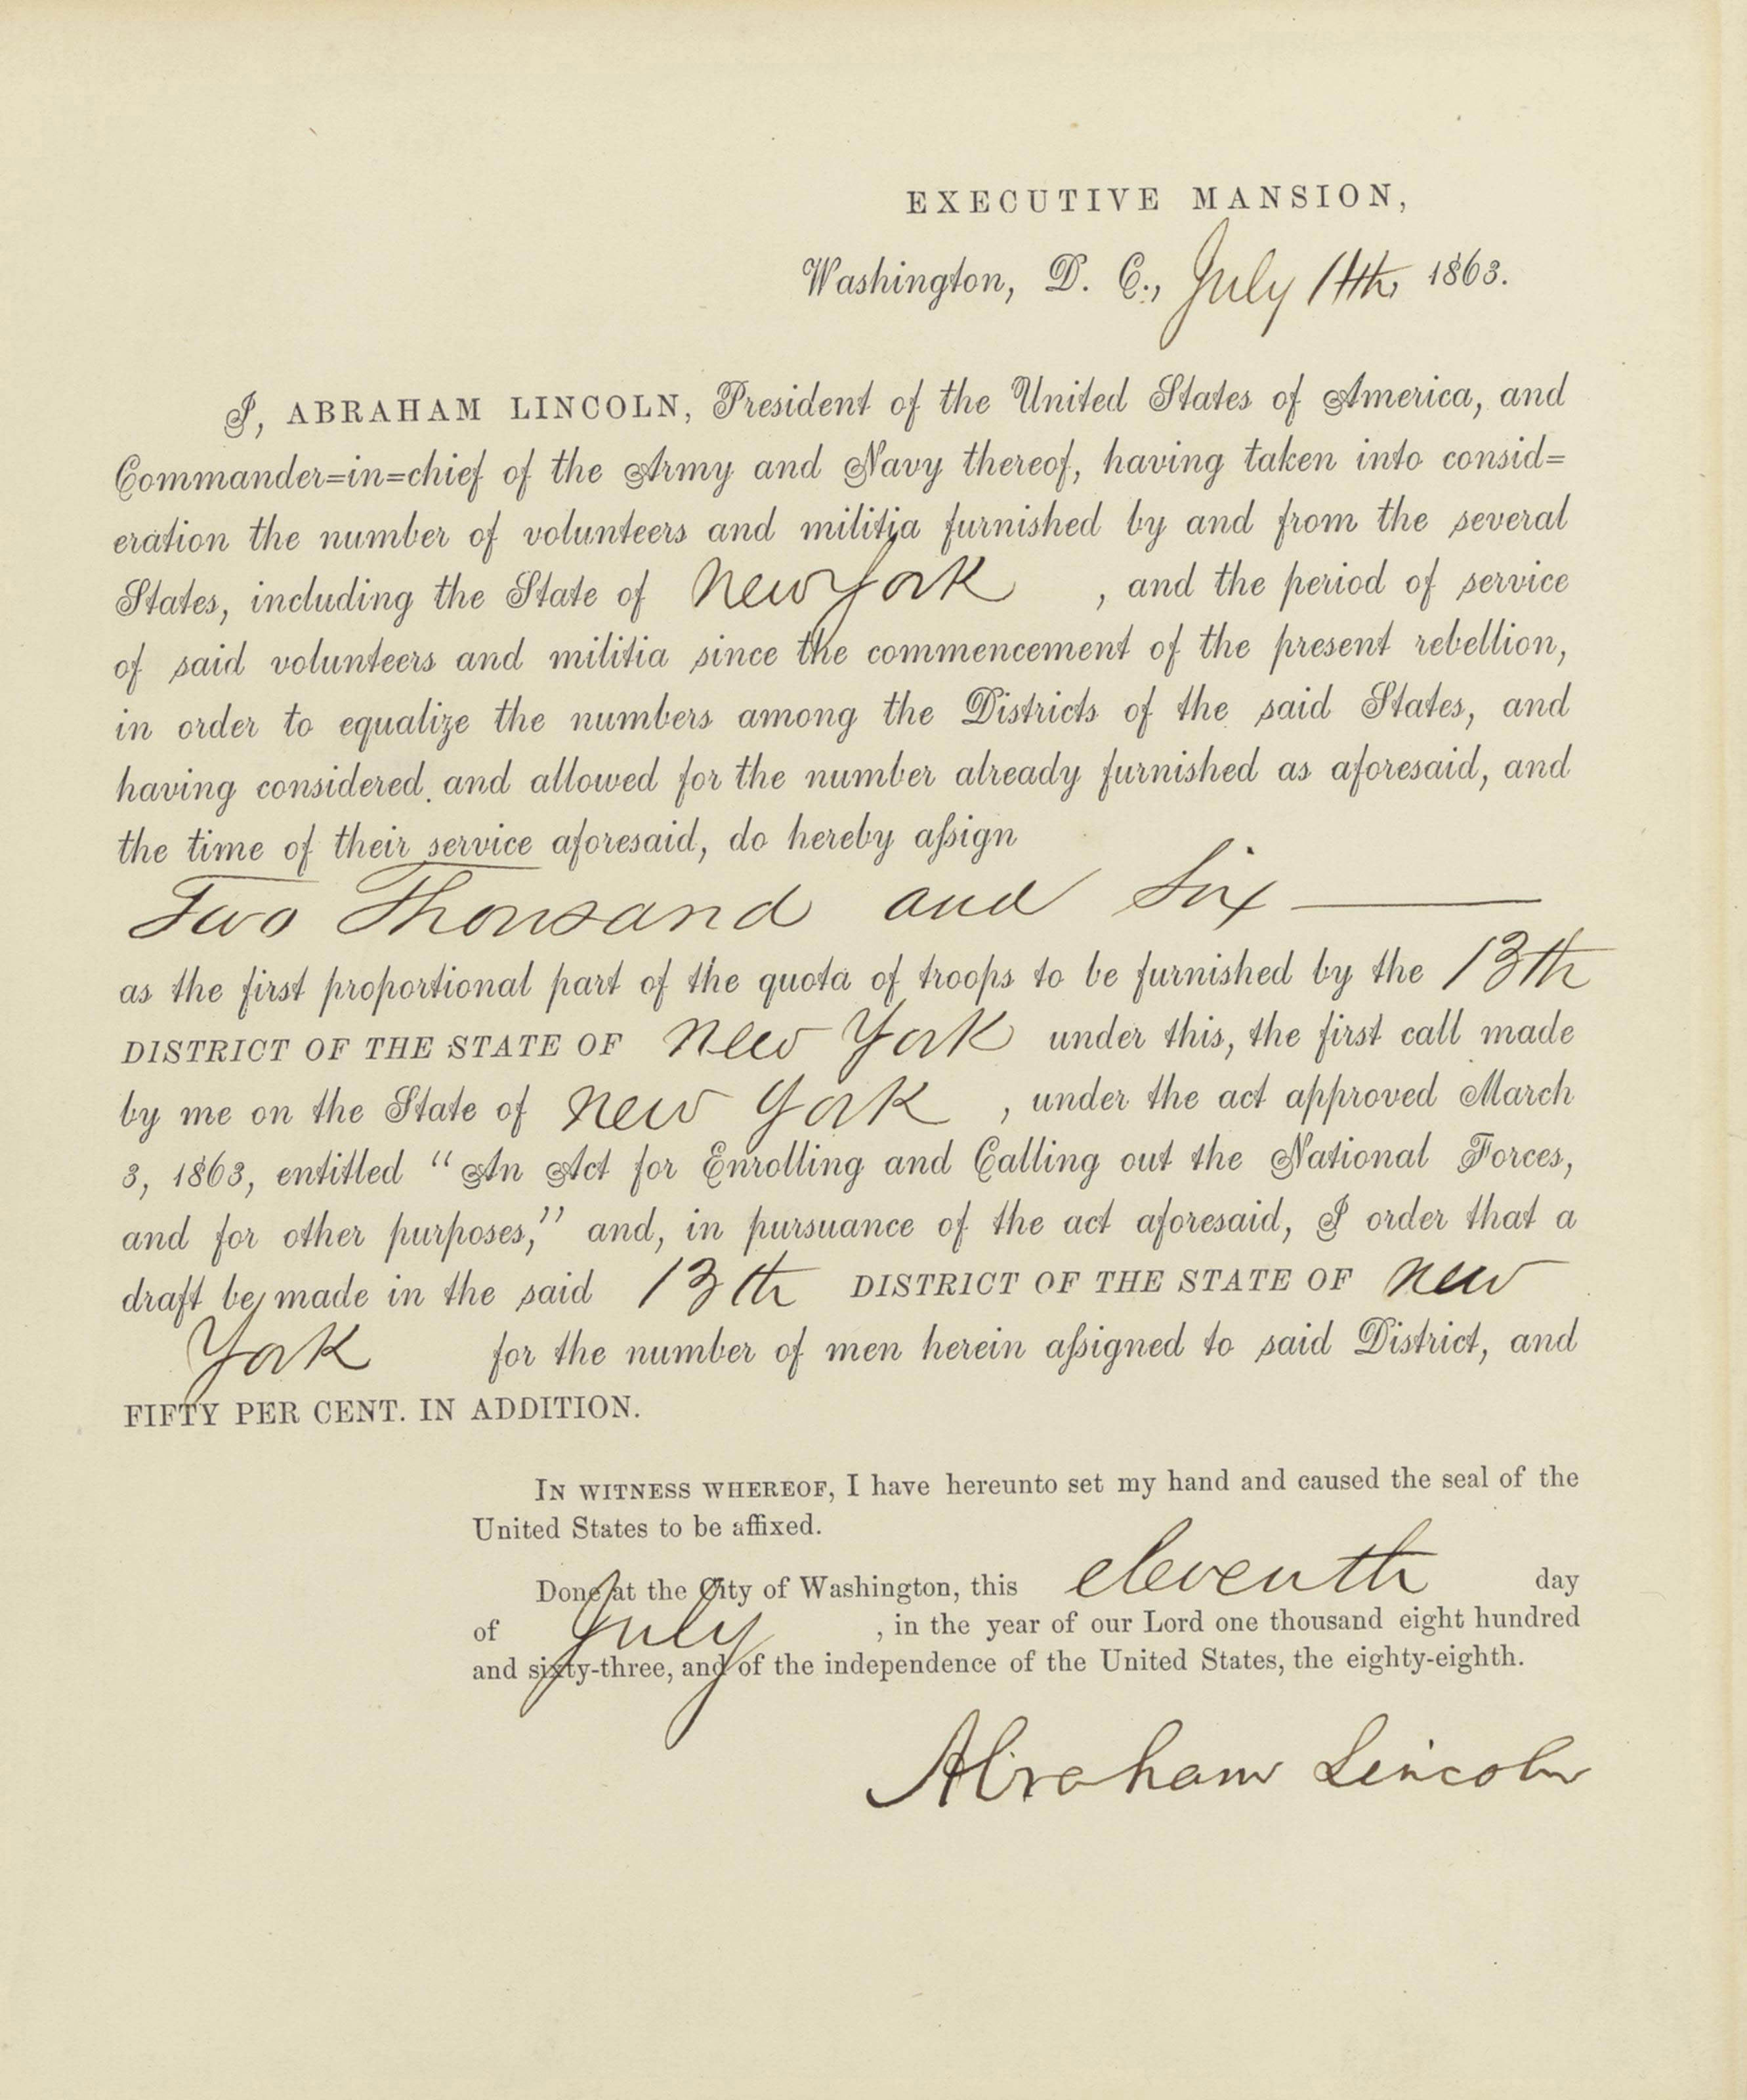 EXECUTIVE MANSION,
Washington, D. C., July 11th, 1863.
I, ABRAHAM LINCOLN, President of the United States of America, and
Commander=in=chief of the Army and Navy thereof, having taken into consid=
eration the number of volunteers and militia furnished by and from the several
States, including the State of New York , and the period of service
of said volunteers and militia since the commencement of the present rebellion,
in order to equalize the numbers among the Districts of the said States, and
having considered and allowed for the number already furnished as aforesaid, and
the time of their service aforesaid, do hereby aſsign
Two Thousand and Six
as the first proportional part of the quota of troops to be furnished by the 13th
DISTRICT OF THE STATE OF New York under this, the first call made
by me on the State of New York , under the act approved March
3, 1863, entitled “An Act for Enrolling and Calling out the National Forces,
and for other purposes,” and, in pursuance of the act aforesaid, I order that a
draft be made in the said 13th DISTRICT OF THE STATE OF New
York for the number of men herein aſsigned to said District, and
FIFTY PER CENT. IN ADDITION.
IN WITNESS WHEREOF, I have hereunto set my hand and caused the seal of the
United States to be affixed.
Done at the City of Washington, this eleventh day
of July , in the year of our Lord one thousand eight hundred
and sixty-three, and of the independence of the United States, the eighty-eighth.
Abraham Lincoln